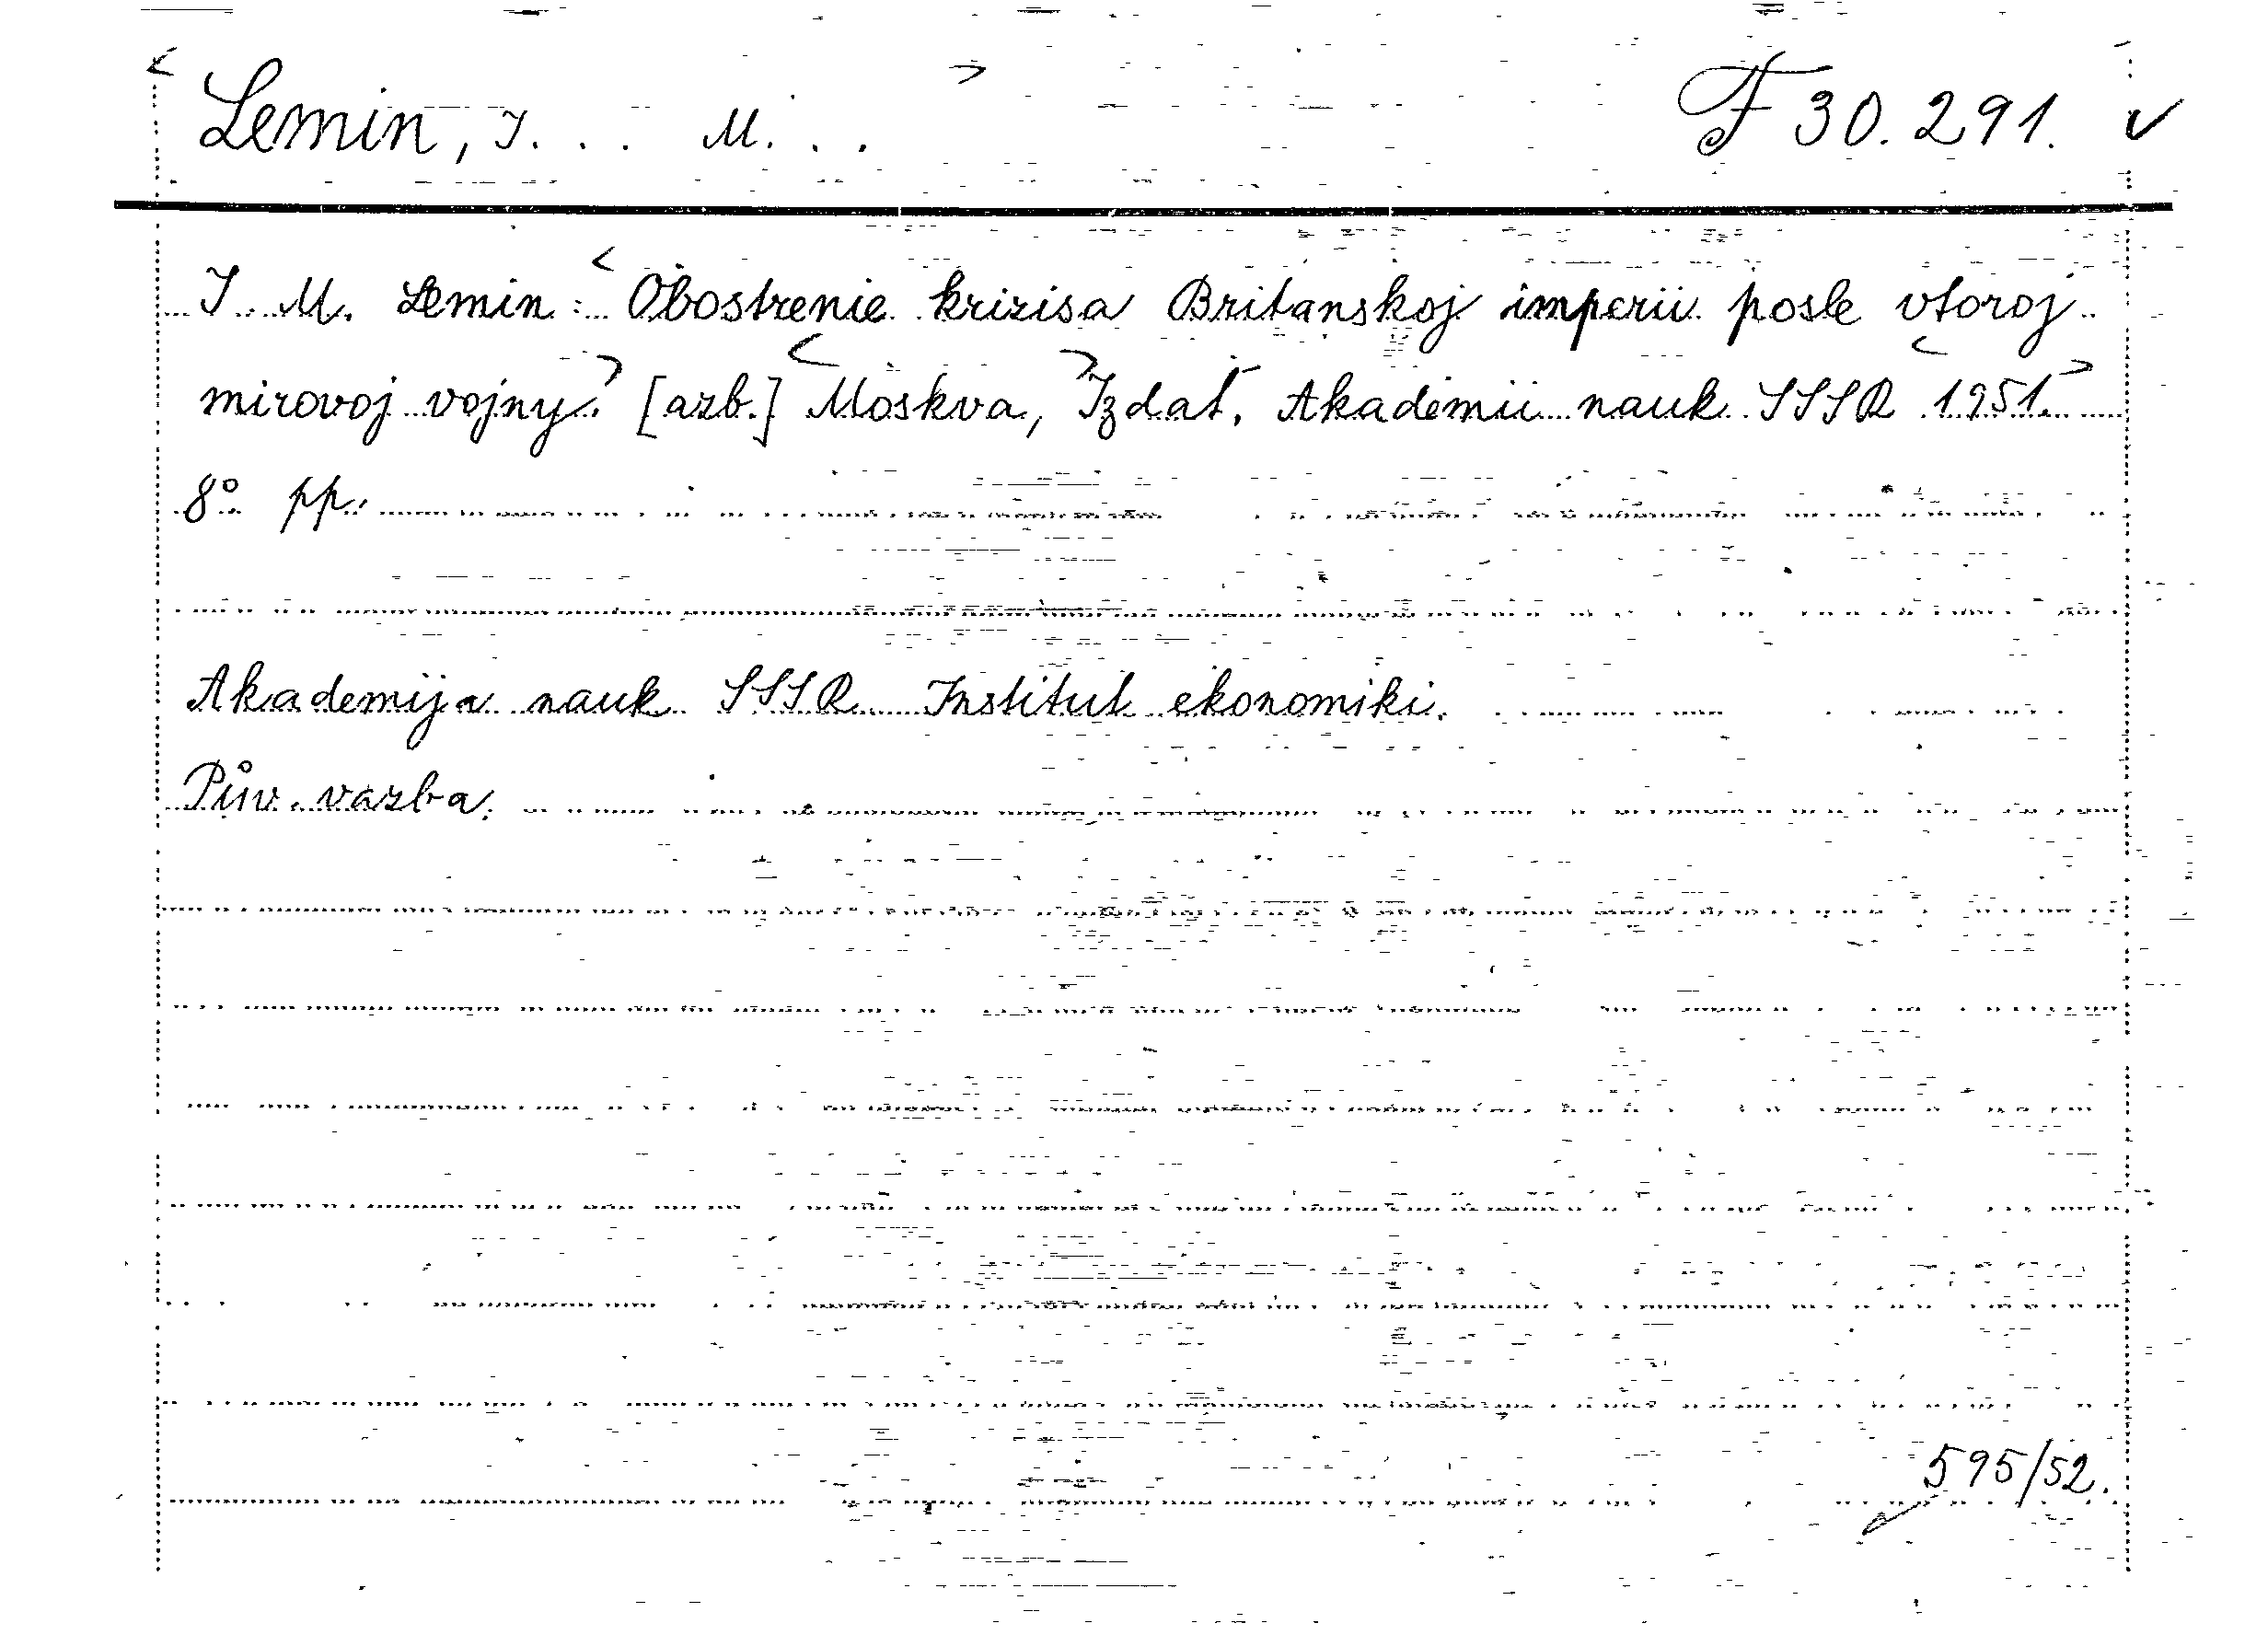 Lemin, I. . . M. . . F 30.291. ✓
I. M. Lemin: Obostrenie krizisa Britanskoj imperii posle vtoroj
mirovoj vojny. [azb.] Moskva, Izdat. Akademii nauk SSSR 1951.
8° pp.
Akademija nauk SSSR Institut ekonomiki.
Pův. vazba.
595/52.